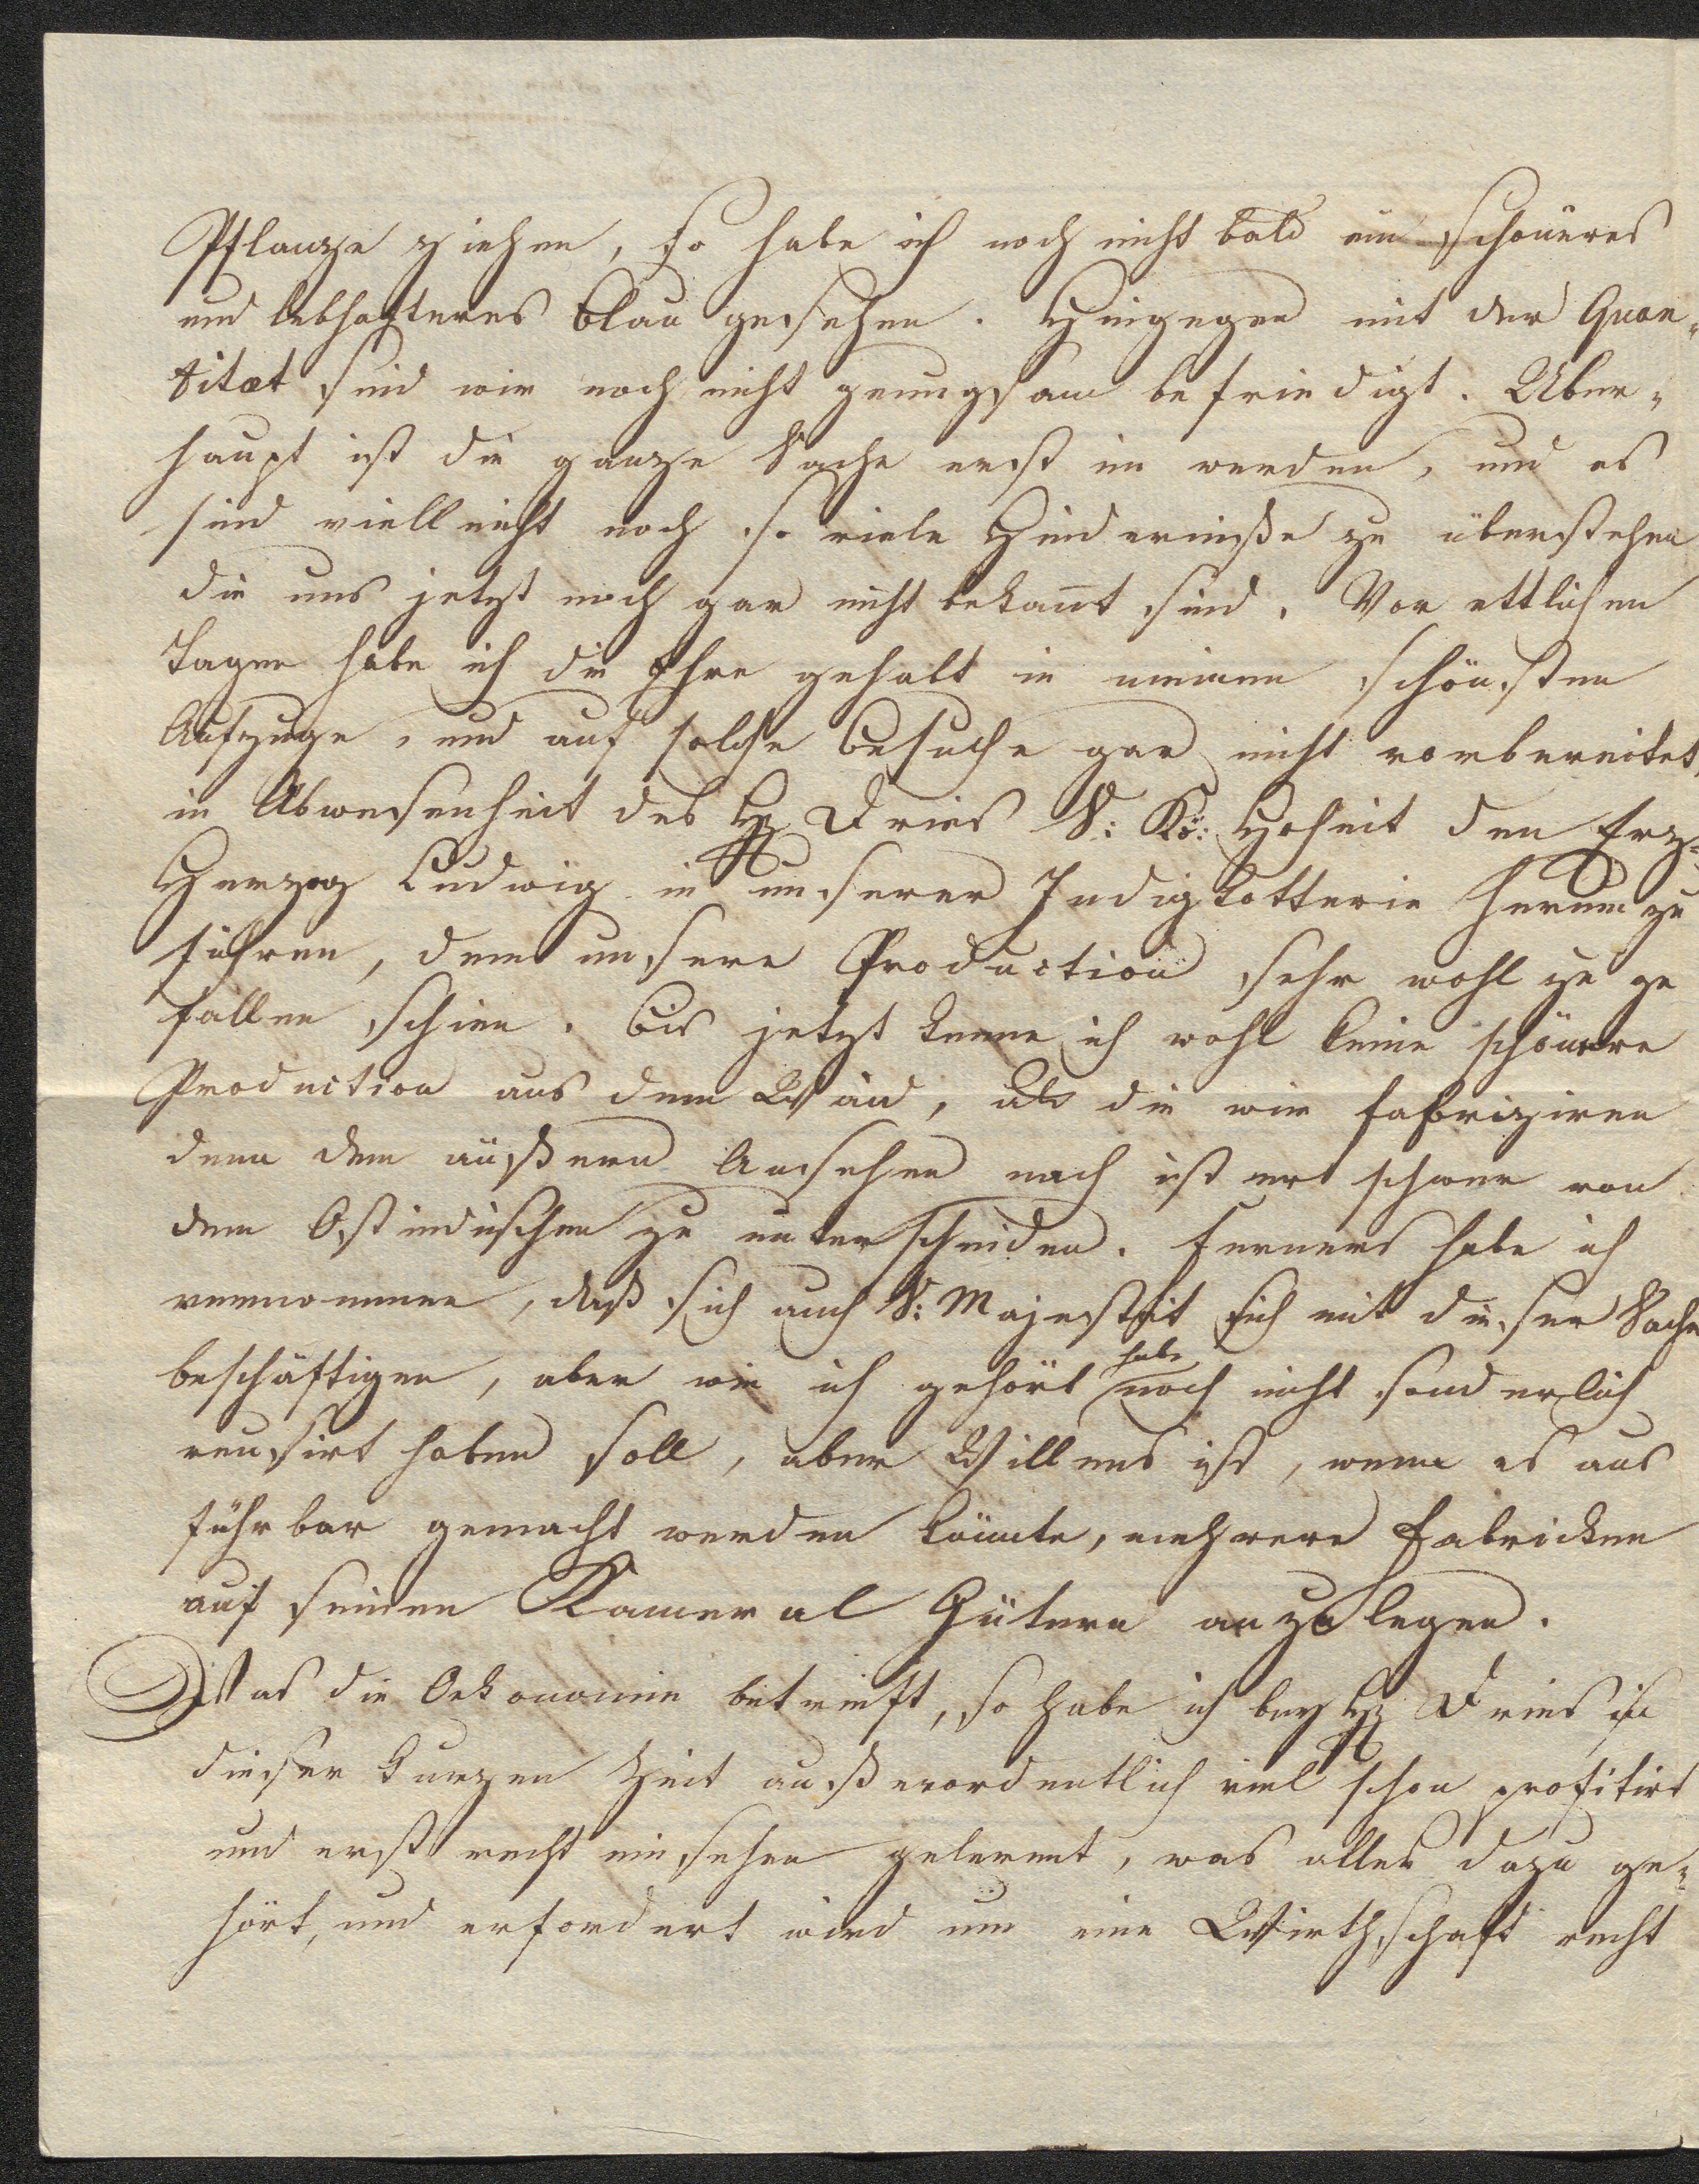 Pflanze ziehen, so habe ich noch nicht bald ein schöneres
und lebhafteres Blau gesehen. Hingegen mit der Quan„
titæt sind wir noch nicht genungsam befriedigt. Uber„
haupt ist die ganze Sache erst im werden, und es
sind vielleicht noch so viele Hinderniße zu überstehen
die uns jetzt noch gar nicht bekañt sind. Vor ettlichen
Tagen habe ich die Ehre gehabt in meinem schönsten
Aufzuge, und auf solche Besuche gar nicht vorbereitet
in Abwesenheit des H Dries S: Kö: Hoheit den Erz„
Herzog Ludwig in unserer Indigkotterie herum zu
führen, dem unsere Production sehr wohl zu ge
fallen schien. Bis jetzt kenne ich wohl keine schönere
Production aus dem Waid, als die wir fabriziren
denn dem äußern Ansehen nach ist er schwer von
dem Ostindischen zu unterscheiden. Ferners habe ich
vernommen, daß sich auch S: Majestät sich mit dieser Sache
beschäftigen, aber wie ich gehört habe noch nicht sonderlich
reusirt haben soll, aber Willens ist, wenn es aus
führbar gemacht werden könnte, mehrere Fabricken
auf seinen Kameral Gütern anzulegen.
Was die Oekonomie betreift, so habe ich bey H Dries in
dieser kurzen Zeit außerordentlich viel schon profitirt
und erst recht einsehen gelernt, was alles dazu ge„
hört, und erfordert wird um eine Wirthschaft recht